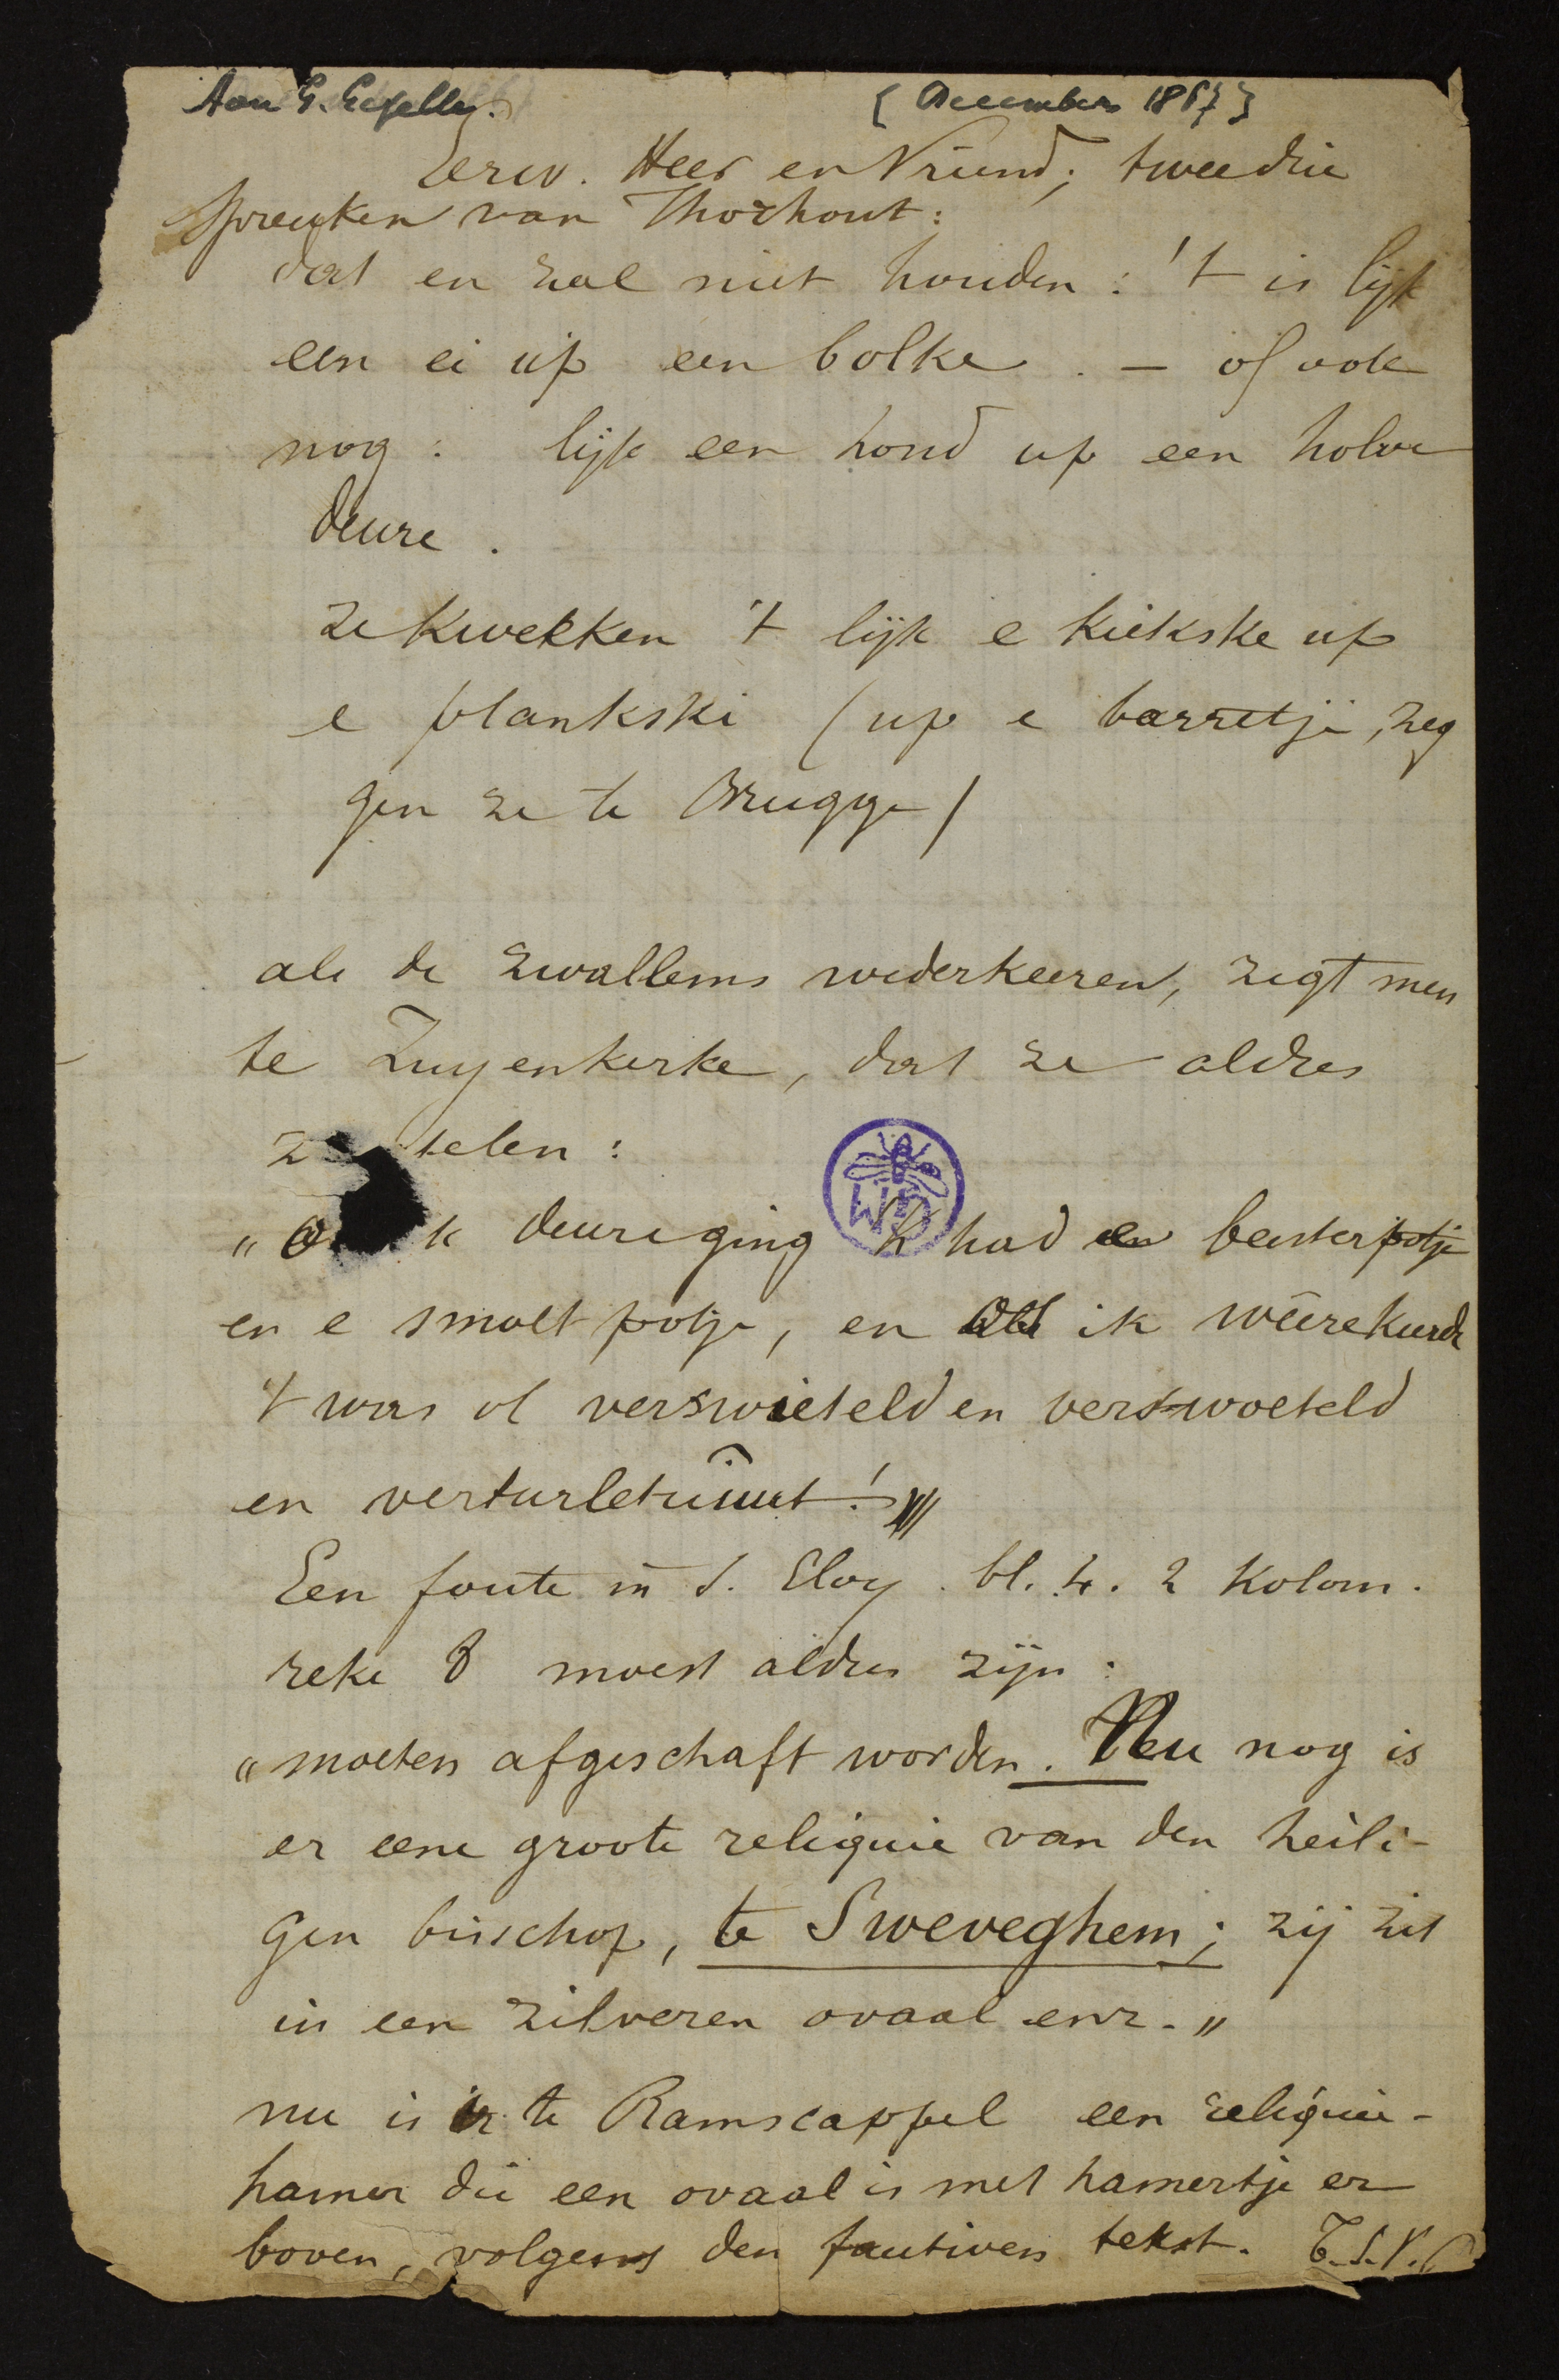 Aan G. Gezelle.
[December 1867]
Eerw. Heer en Vriend; twee drie
spreuken van Thorhout:
dat en zal niet houden: 't is lijk
een ei up een bolke. – of ook
nog: lijk een hond up een holve
deure.
ze kwekken 't lijk e kiekske up
e plankske (up e barretje, zeg
gen ze te Brugge)
als de zwallems wederkeeren, zegt men
te Zuyenkerke, dat ze aldres
telen:
"  k deure ging k had een beeterpotje
en e smoltpotje, en als ik wêere keerde
't was ol verswieteld en verswoeteld
en verturletuut!"
Een foute in S. Eloy. bl. 4. 2 kolom.
reke 8 moest aldus zijn:
"moeten afgeschaft worden. Nu nog is
er eene groote reliquie van den heili-
gen bisschop, te Sweveghem; zij zit
in een zilveren ovaal enz."
nu is er te Ramscappel een reliquie-
hamer die een ovaal is met hamertje er
boven, volgens den fautiven tekst.
WD